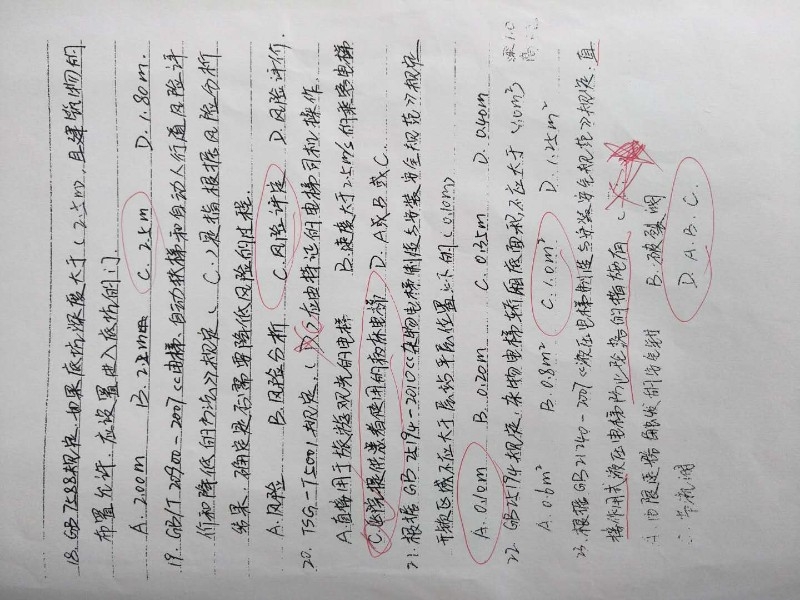 18. GB 7588规定,如果底坑深度大于(2.5m),且建筑物的
布置允许,应设置进入底坑的门.
A. 2.00m B. 2.2m C. 2.5m D. 1.80m.
19. GB/T 20900-2007《电梯、自动扶梯和自动人行道风险评
价和降低的方法》规定,(C.)是指根据风险分析
结果,确定是否需要降低风险的过程.
A.风险 B.风险分析 C.风险评定 D.风险评价.
20. TSG-T5001规定,( )应由持证的电梯司机操作.
A.直接用于旅游观光的电梯 B.速度大于2.5m/s的乘客电梯
C.医院提供患者使用的病床电梯 D. A或B或C.
21. 根据GB 25194-2010《杂物电梯制造与安装安全规范》规定
开锁区域不应大于层站平层位置上下的(0.10m)
A. 0.10m B. 0.20m C. 0.35m D. 0.40m
22. GB 25194规定,杂物电梯轿厢底面积,不应大于(1.0m²)
A. 0.6m² B. 0.8m² C. 1.0m² D. 1.25m²
23. 根据GB 21240-2007《液压电梯制造与安装安全规范》规定,直
接作用式液压电梯防止坠落的措施有(
A.由限速器触发的安全钳 B.破裂阀
节流阀 D. A.B.C.